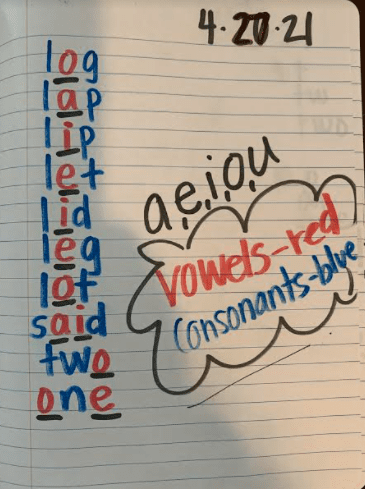 4.20.21
log
lap
lip
let
lid
leg
lot
said
two
one
a,e,i,o,u
vowels-red
consonants-blue